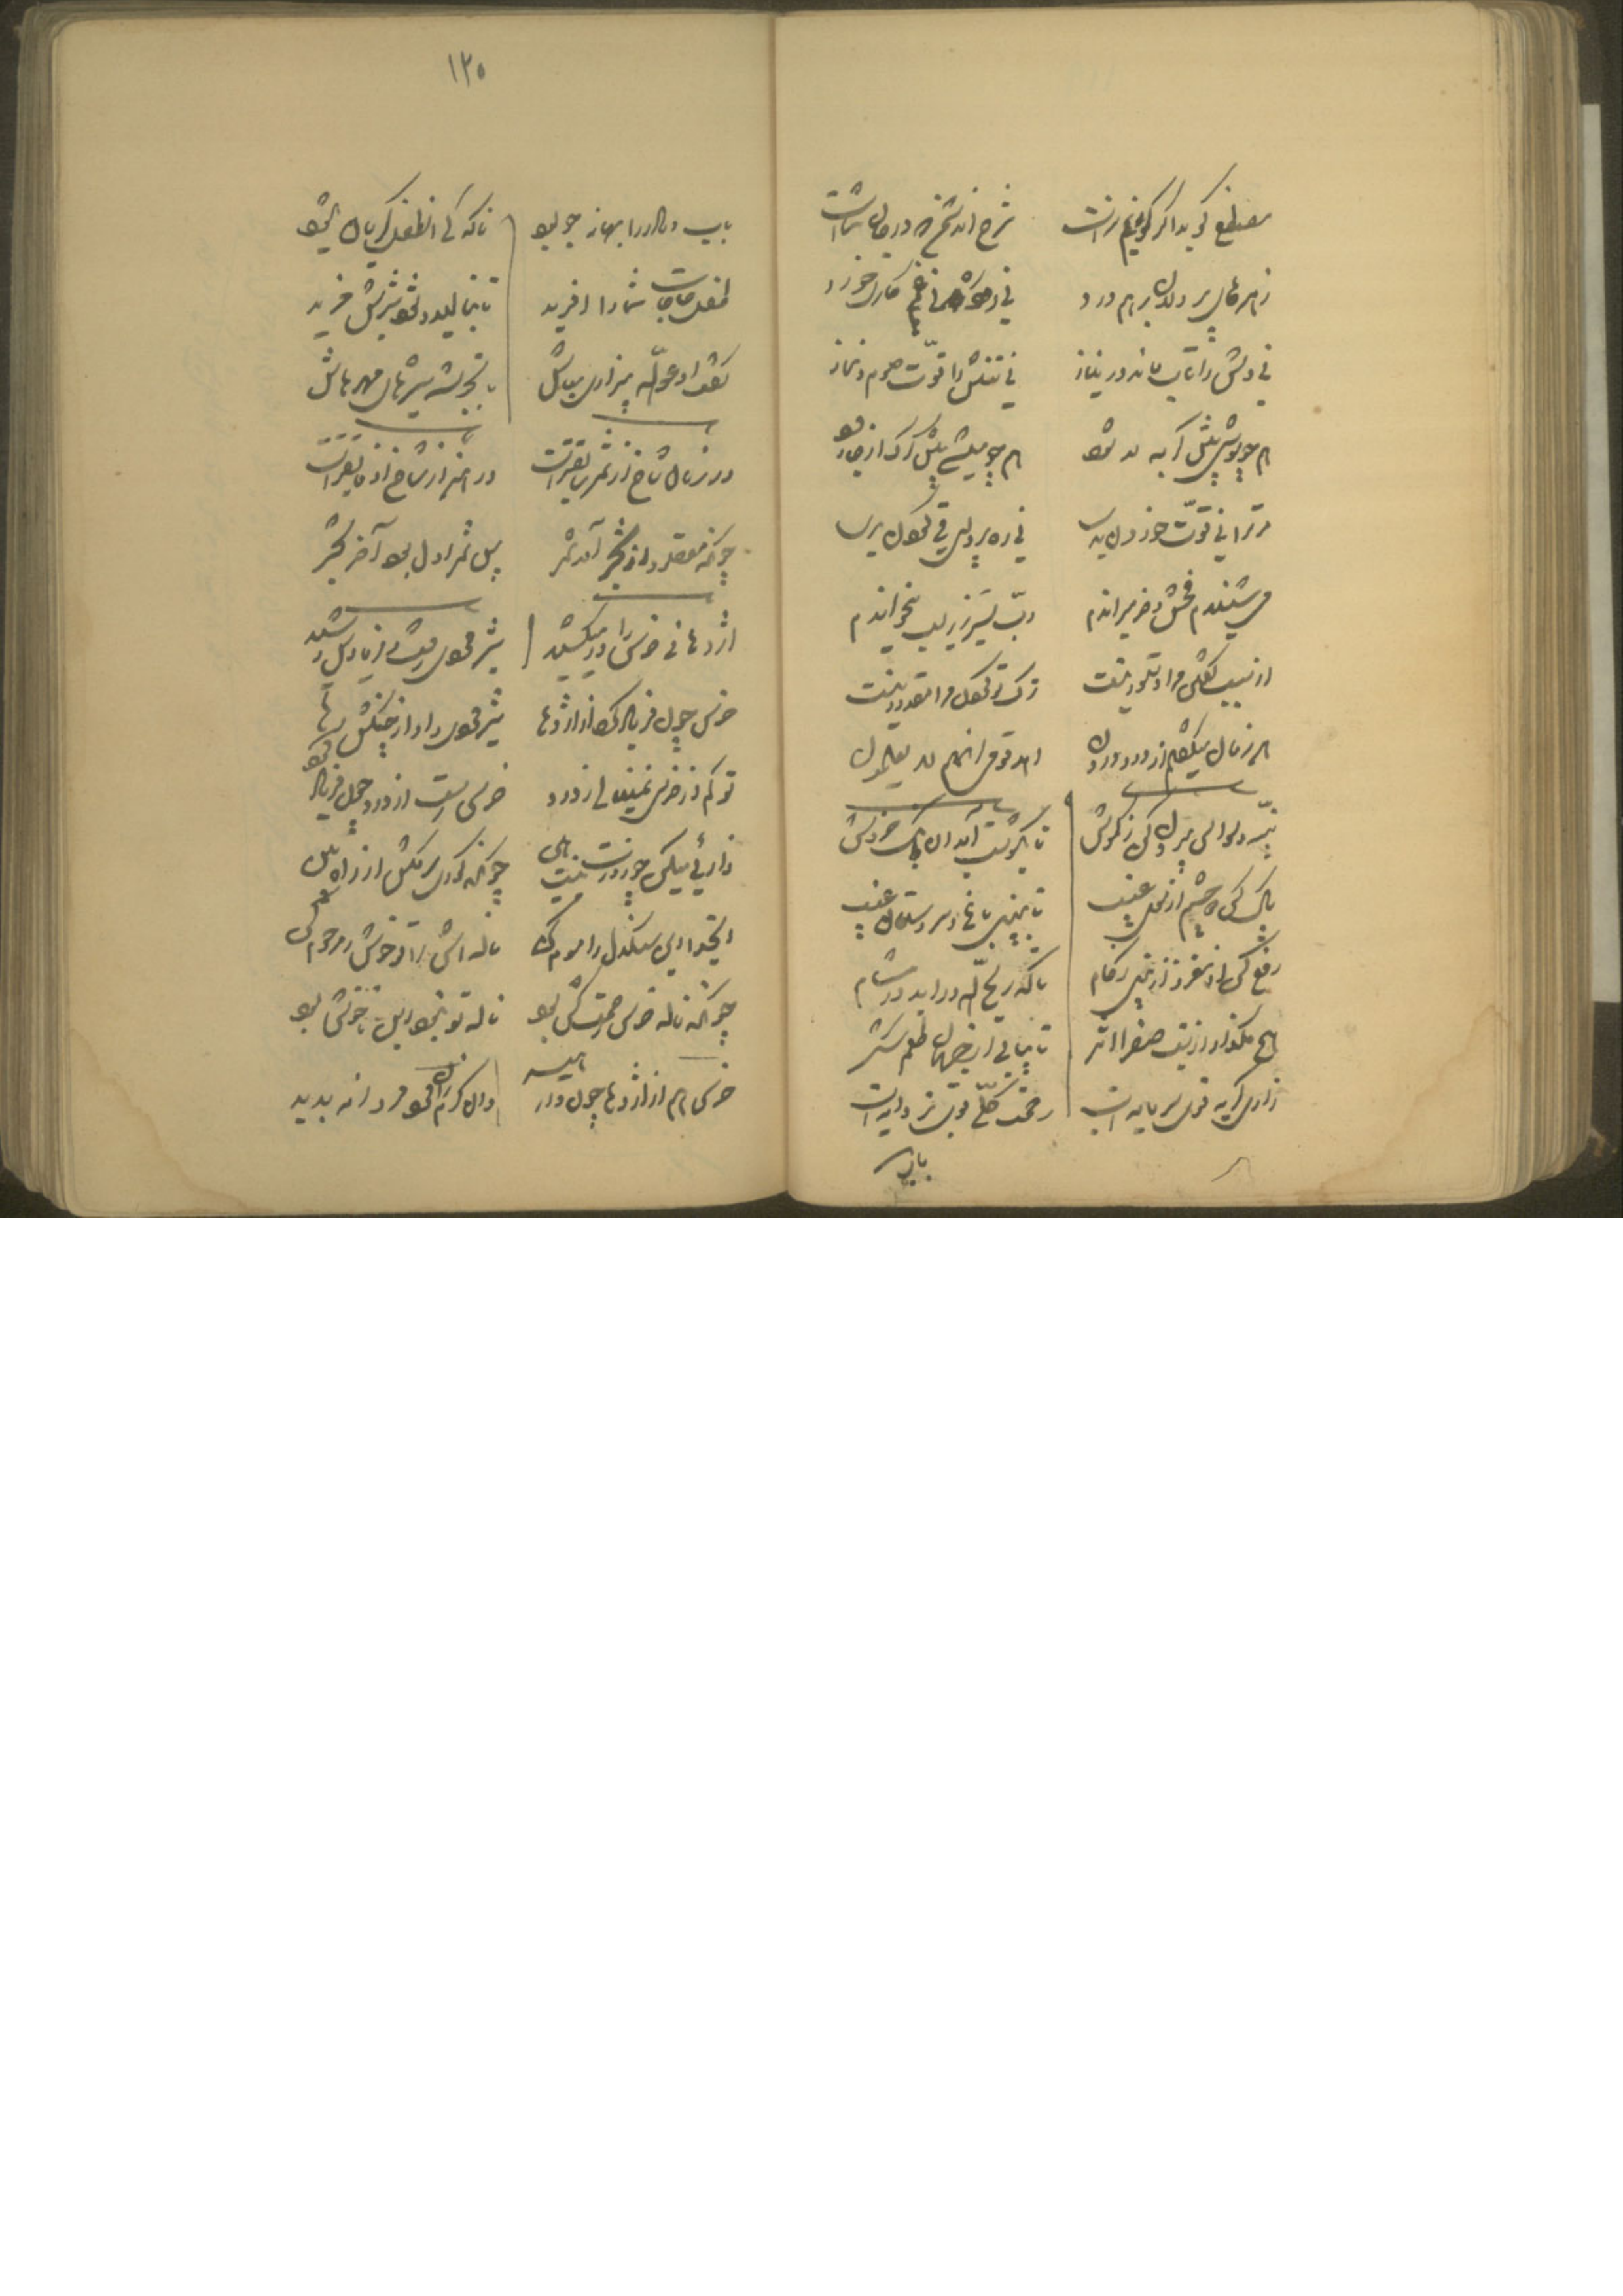 مصطفی گوید اگر گویم براست شرح آن دشمن که در جان شماست
زهرهای پر دلان بر هم درد نی رود ره نی غم کاری خورد
نی دلش را تاب ماند در نیاز نی تنش را قوّت صوم و نماز
همچو موشی پیش گربه لا شود همچو میشی پیش گرگ از جا رود
مر ترا نی قوّت خوردن بدی نی ره و پروای قی کردن بدی
می شنیدم فحش و خر میراندم ربّ یسّر زیر لب میخواندم
از سبب گفتن مرا دستور نیست ترک تو گفتن مرا مقدور نیست
هر زمان میگفتم از درد درون اهد قومی انهم لا یعلمون
پنبه وسواس بیرون کن ز گوش تا بگوشت آید خروش
پاک کن چشم از موی عیب تا ببینی باغ و سروستان غیب
دفع کن از مغز و از بینی زکام تا که ریح اللّه در آید در مشام
هیچ مگذار از تب صفرا اثر تا بیابی از جهان طعم شکر
زاری گریه قوی سرمایه است رحمت کلّی قوی تر دایه است
۱۲۵
دایه و مادر بهانه جو بود تا که کی آن طفل گریان شود
طفل حاجات شما را آفرید تا بنالید و شود شیرش پدید
گفت ادعو اللّه بی زاری مباش تا بجوشد شیرهای مهرهاش
در زمان شاخ از ثمر سابق تر است در هنر از شاخ او فایق تر است
چونکه مقصود از شجر آمد ثمر پس ثمر اول بود آخر شجر
اژدهائی خرس را در میکشید شیر مردی رفت و فریادش رسید
خرس چون فریاد کرد از اژدها شیر مردی کرد از چنگش رها
تو کم از خرسی نمینالی ز درد خرس رست از درد چون فریاد کرد
زارئی میکن چو زورت نیست هین چونکه کوری سر مکش از راه بین
ای خدا این سنگدل را موم کن ناله اش را تو خوش و مرحوم کن
چونکه ناله خرس رحمت کش بود ناله تو نبود این ناخوش بود
خرس هم از اژدها چون وا رهید وان کرم زان مرد مردانه بدید